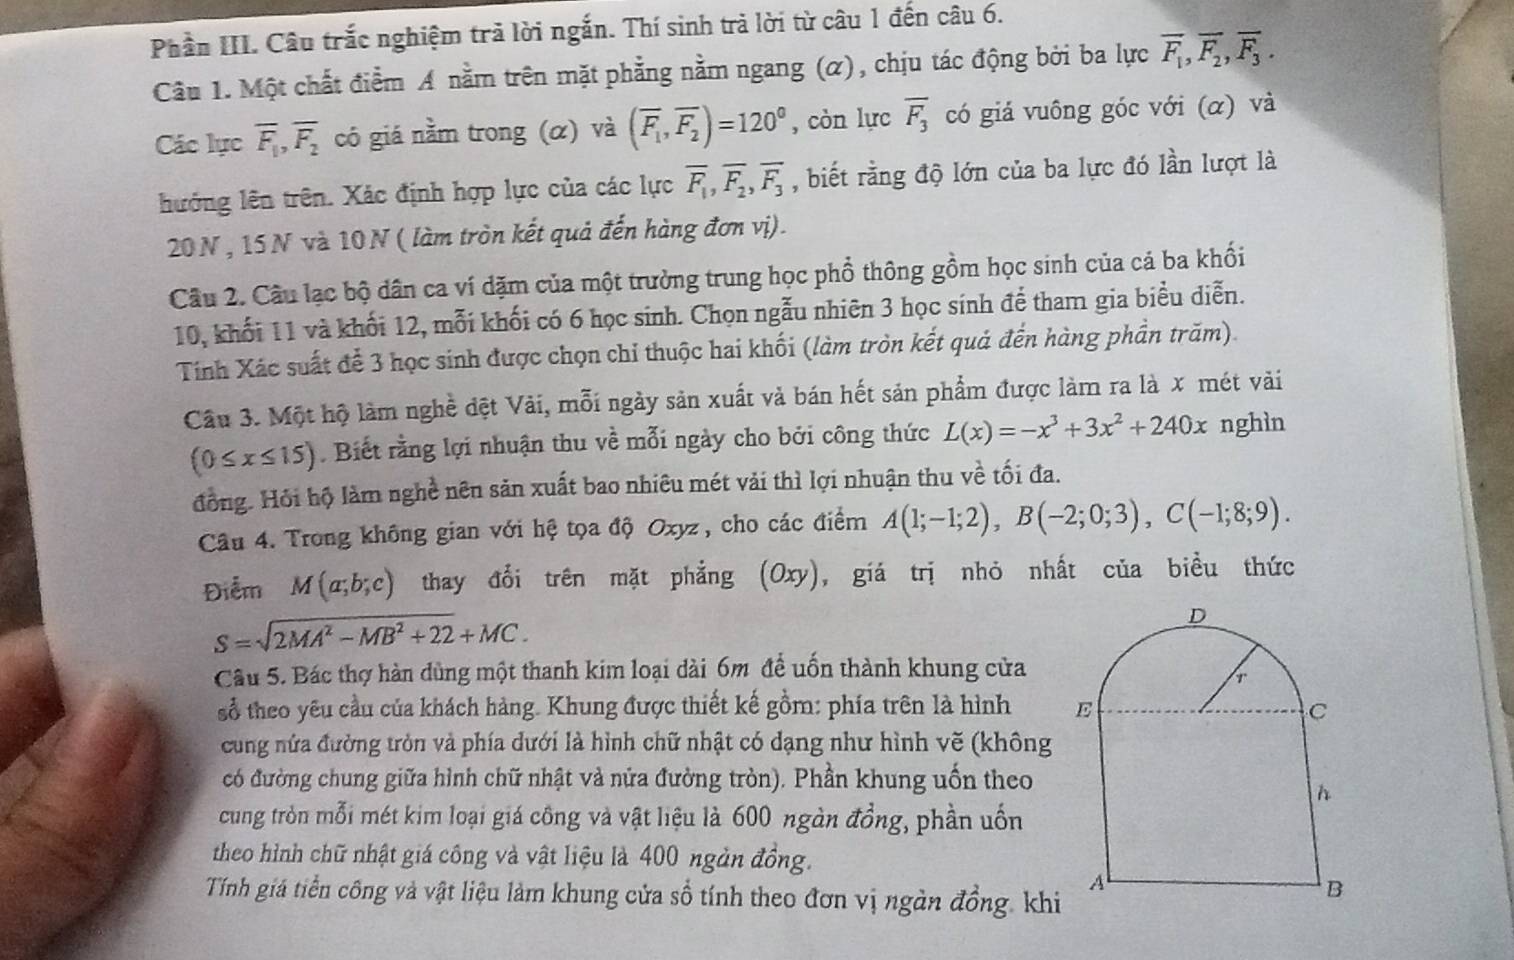 Phần III. Câu trắc nghiệm trả lời ngắn. Thí sinh trả lời từ câu 1 đến câu 6.
Câu 1. Một chất điểm A nằm trên mặt phẳng nằm ngang (α), chịu tác động bởi ba lực $\overline{F_1}, \overline{F_2}, \overline{F_3}$.
Các lực $\overline{F_1}, \overline{F_2}$ có giá nằm trong (α) và $(\overline{F_1}, \overline{F_2}) = 120^0$, còn lực $\overline{F_3}$ có giá vuông góc với (α) và
hướng lên trên. Xác định hợp lực của các lực $\overline{F_1}, \overline{F_2}, \overline{F_3}$, biết rằng độ lớn của ba lực đó lần lượt là
20 N , 15 N và 10 N ( làm tròn kết quả đến hàng đơn vị).
Câu 2. Câu lạc bộ dân ca ví dặm của một trường trung học phổ thông gồm học sinh của cả ba khối
10, khối 11 và khối 12, mỗi khối có 6 học sinh. Chọn ngẫu nhiên 3 học sinh để tham gia biểu diễn.
Tính Xác suất để 3 học sinh được chọn chỉ thuộc hai khối (làm tròn kết quả đến hàng phần trăm).
Câu 3. Một hộ làm nghề dệt Vải, mỗi ngày sản xuất và bán hết sản phẩm được làm ra là x mét vải
(0 ≤ x ≤ 15). Biết rằng lợi nhuận thu về mỗi ngày cho bởi công thức $L(x) = -x^3 + 3x^2 + 240x$ nghìn
đồng. Hỏi hộ làm nghề nên sản xuất bao nhiêu mét vải thì lợi nhuận thu về tối đa.
Câu 4. Trong không gian với hệ tọa độ Oxyz, cho các điểm A(1;−1;2), B(−2;0;3), C(−1;8;9).
Điểm M(a;b;c) thay đổi trên mặt phẳng (Oxy), giá trị nhỏ nhất của biểu thức
$S = \sqrt{2MA^2 - MB^2 + 22} + MC$.
Câu 5. Bác thợ hàn dùng một thanh kim loại dài 6m để uốn thành khung cửa
sổ theo yêu cầu của khách hàng. Khung được thiết kế gồm: phía trên là hình
cung nửa đường tròn và phía dưới là hình chữ nhật có dạng như hình vẽ (không
có đường chung giữa hình chữ nhật và nửa đường tròn). Phần khung uốn theo
cung tròn mỗi mét kim loại giá công và vật liệu là 600 ngàn đồng, phần uốn
theo hình chữ nhật giá công và vật liệu là 400 ngàn đồng.
Tính giá tiền công và vật liệu làm khung cửa sổ tính theo đơn vị ngàn đồng. khi
D
r
E
C
h
A
B